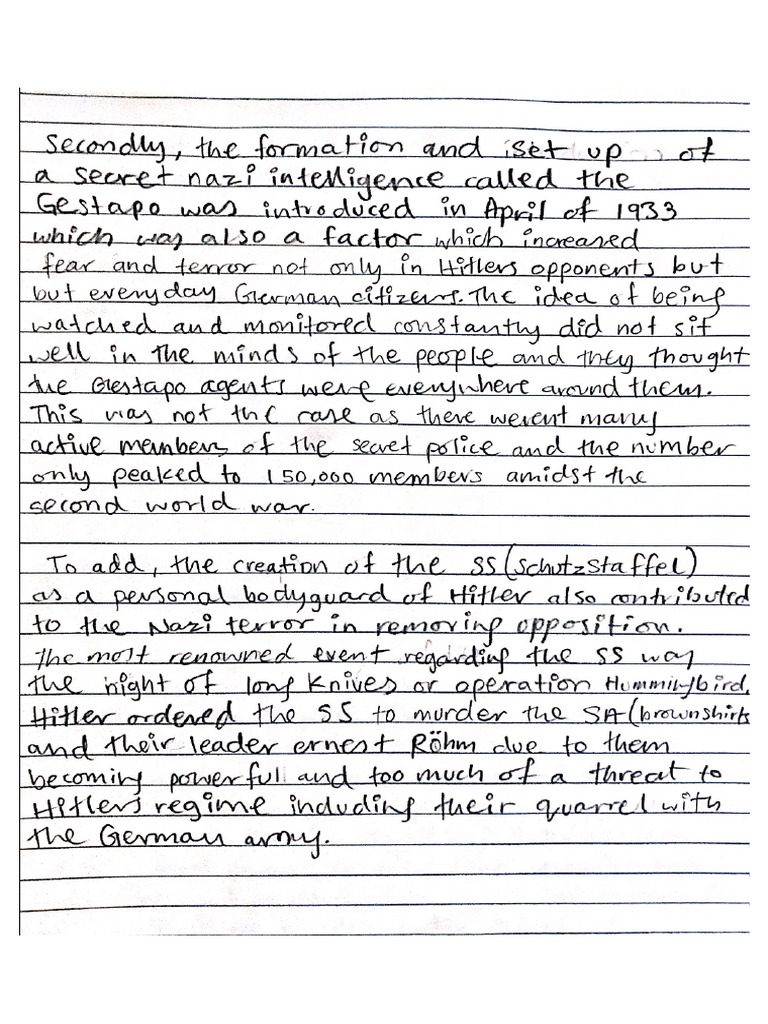 Secondly, the formation and set up of
a secret nazi intelligence called the
Gestapo was introduced in April of 1933
which was also a factor which increased
fear and terror not only in Hitlers opponents but
but everyday German citizens. The idea of being
watched and monitored constantly did not sit
well in the minds of the people and they thought
the Gestapo agents were everywhere around them.
This was not the case as there werent many
active members of the secret police and the number
only peaked to 150,000 members amidst the
second world war.
To add, the creation of the SS (Schutzstaffel)
as a personal bodyguard of Hitler also contributed
to the Nazi terror in removing opposition.
The most renowned event regarding the SS was
the night of long Knives or operation Hummingbird.
Hitler ordered the SS to murder the SA (brownshirts
and their leader ernest Röhm due to them
becoming powerful and too much of a threat to
Hitlers regime including their quarrel with
the German army.